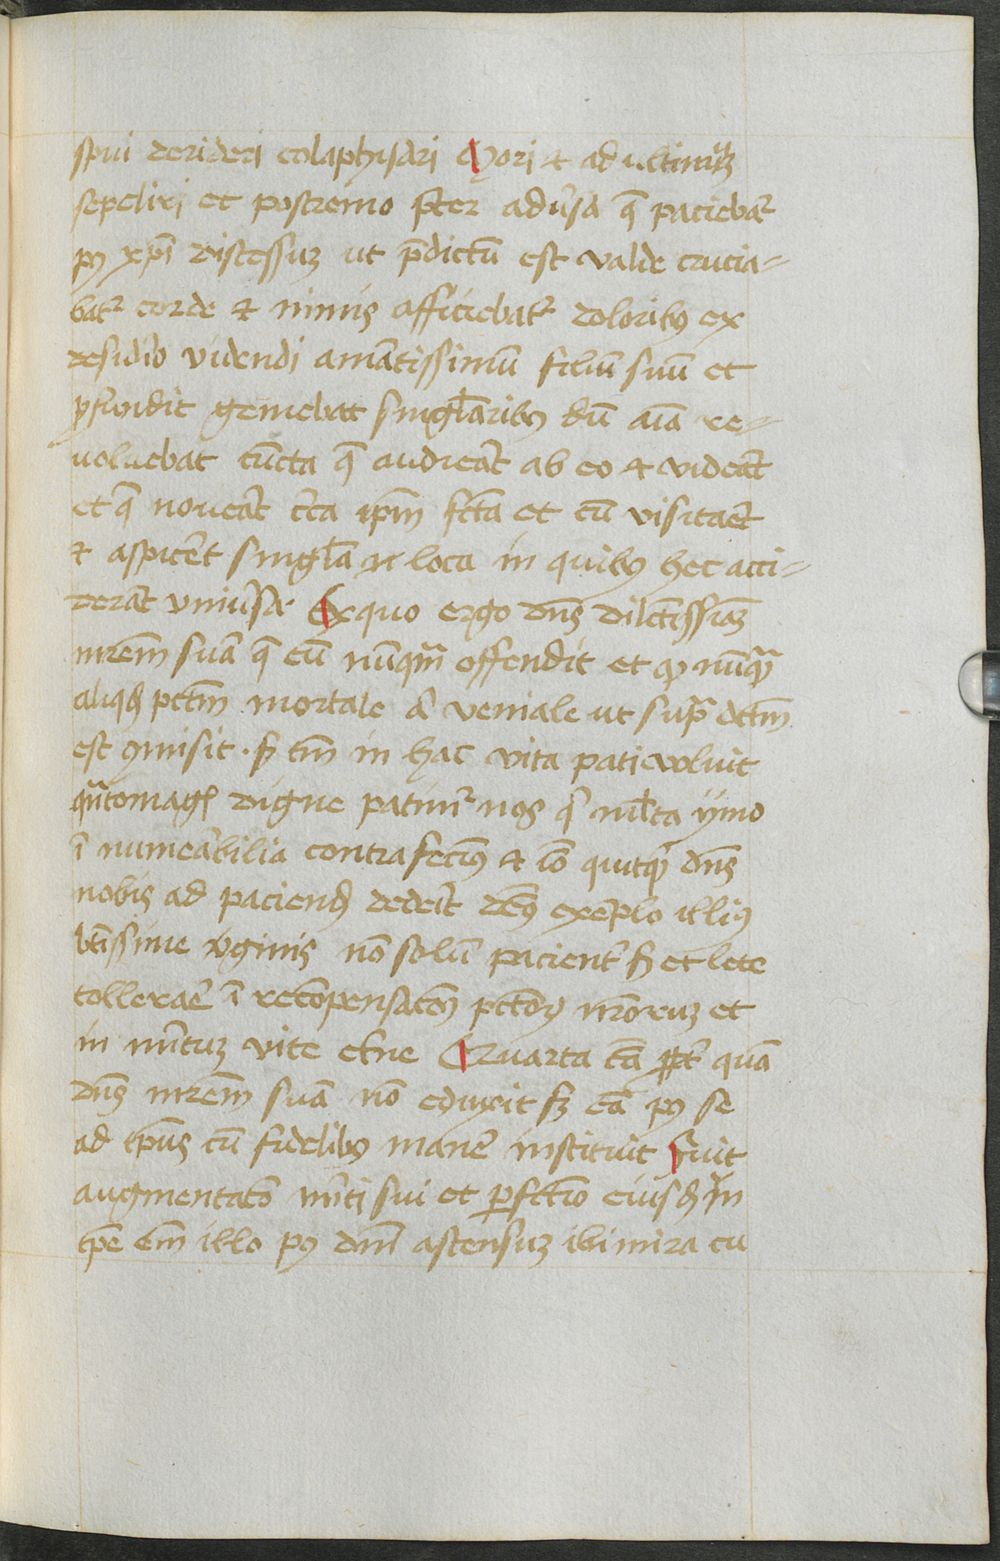 spui derideri colaphisari Mori et ad ultimuʒ
sepeliri et postremo p̄ter adũsa q̄ paciebat᷑
pꝰ xp̄i discessuʒ ut p̄dictū est valde crucia-
bat᷑ corde et nimis afficiebat᷑ doloribꝰ ex
desidio videndi amātissimū filiū suū et
ꝓfundit gemebat singl̄aribꝰ dū aīa re-
voluebat cūcta q̄ audieāt ab eo et videāt
et q̄ noveāt c̄ca ip̄m fc̄ta et cū visitaēt
et aspicēt singl̄a loca in quibꝰ hec acci-
derāt univ̄sa. Ex quo ergo dn̄s dilc̄tissiāʒ
mr̄em suā q̄ eū nūqm̄ offendit et nūqꝫ
aliqd̄ pctm̄ mortale veniale ut sup̄ dc̄tm
est ꝯmisit. tm̄ in hac vita pati voluit
qn̄tomagꝭ digne patim᷑ nos q̄ ml̄ta ymo
ī numeābilia contra fecimꝰ et iō quitqꝫ dn̄s
nobis ad paciend̄ dedeīt debemꝰ exēplo illiꝰ
btīssime v̄ginis nō solū pacient᷑ sꝫ et lete
tolleraē ī recōpensacōem pctōꝝ nr̄oruʒ et
in mi̅tuʒ vite et̄ne Quarta cā ꝓpt᷑ quā
dn̄s mr̄em suā nō eduxit sꝫ eā pꝰ se
ad tp̄us cū fidelibꝰ manē instituit Fuit
augmentatō mīti sui et ꝑfctio eiusdē in
tp̄e em̄ illo pꝰ dn̄i ascensuʒ ibi mira cu